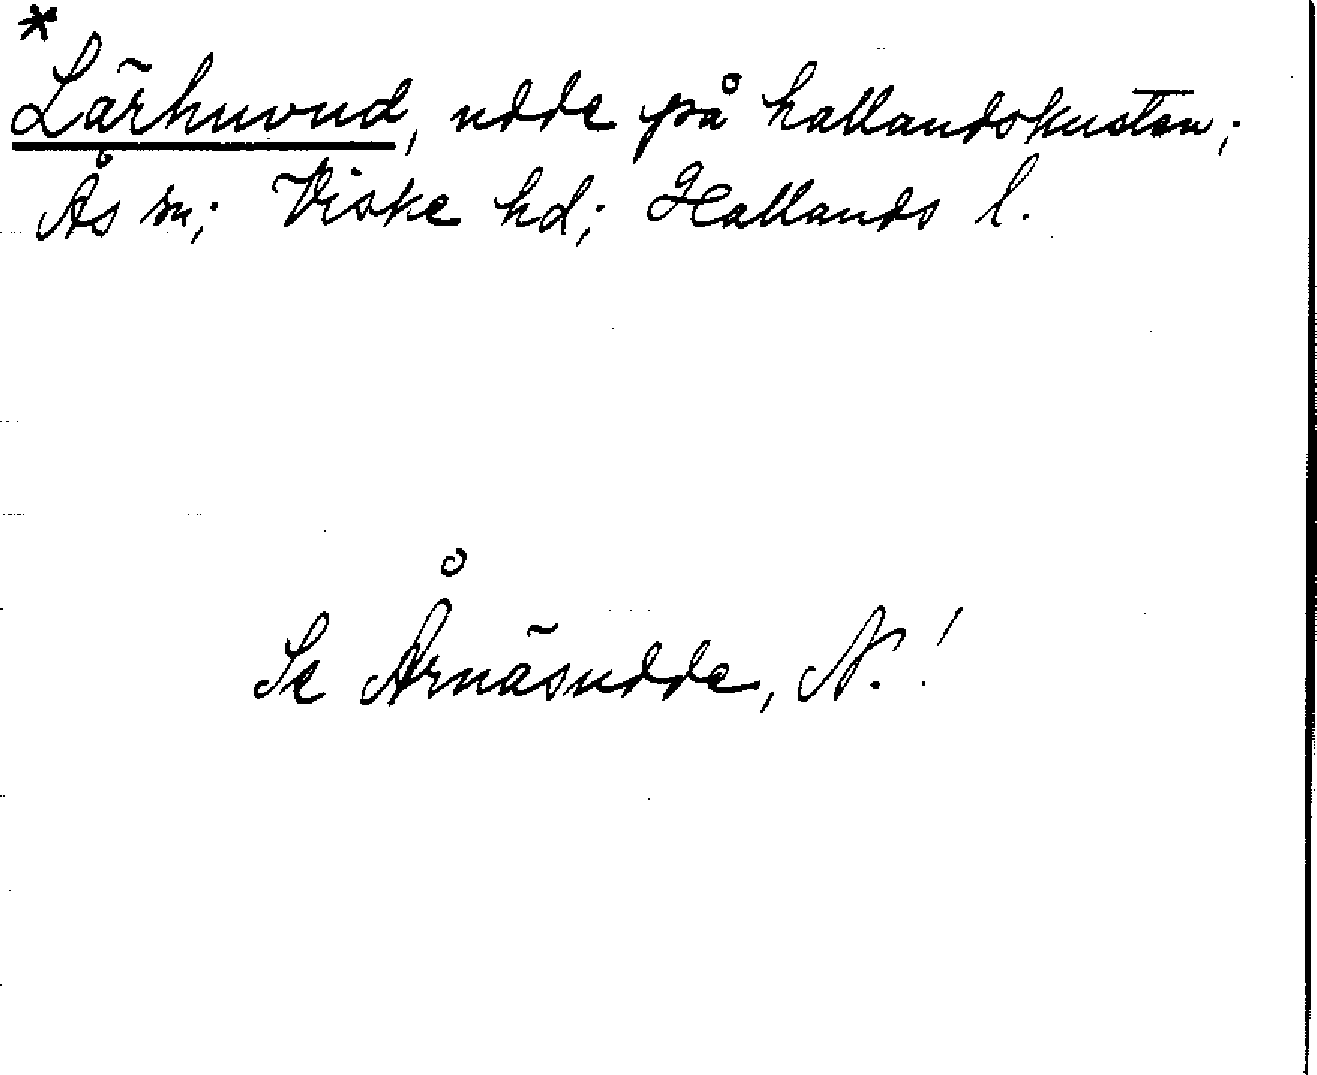 *
Lärhuvud, udde på hallandskusten;
Ås sn; Viske hd; Hallands l.
Se Årnäsudde, N.!